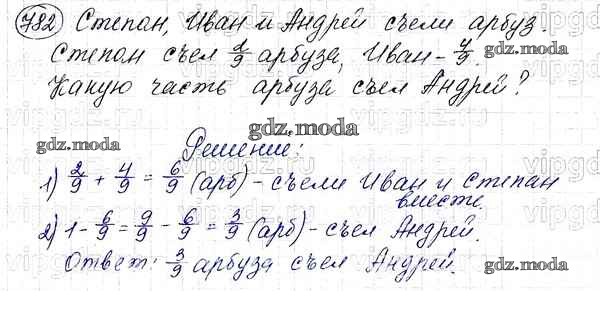 782 Степан, Иван и Андрей съели арбуз.
Степан съел 2/9 арбуза, Иван - 4/9.
Какую часть арбуза съел Андрей?
gdz.moda
gdz.moda
Решение:
1) 2/9 + 4/9 = 6/9 (арб) - съели Иван и Степан
вместе
2) 1 - 6/9 = 9/9 - 6/9 = 3/9 (арб) - съел Андрей.
gdz.moda
Ответ: 3/9 арбуза съел Андрей.
gdz.moda